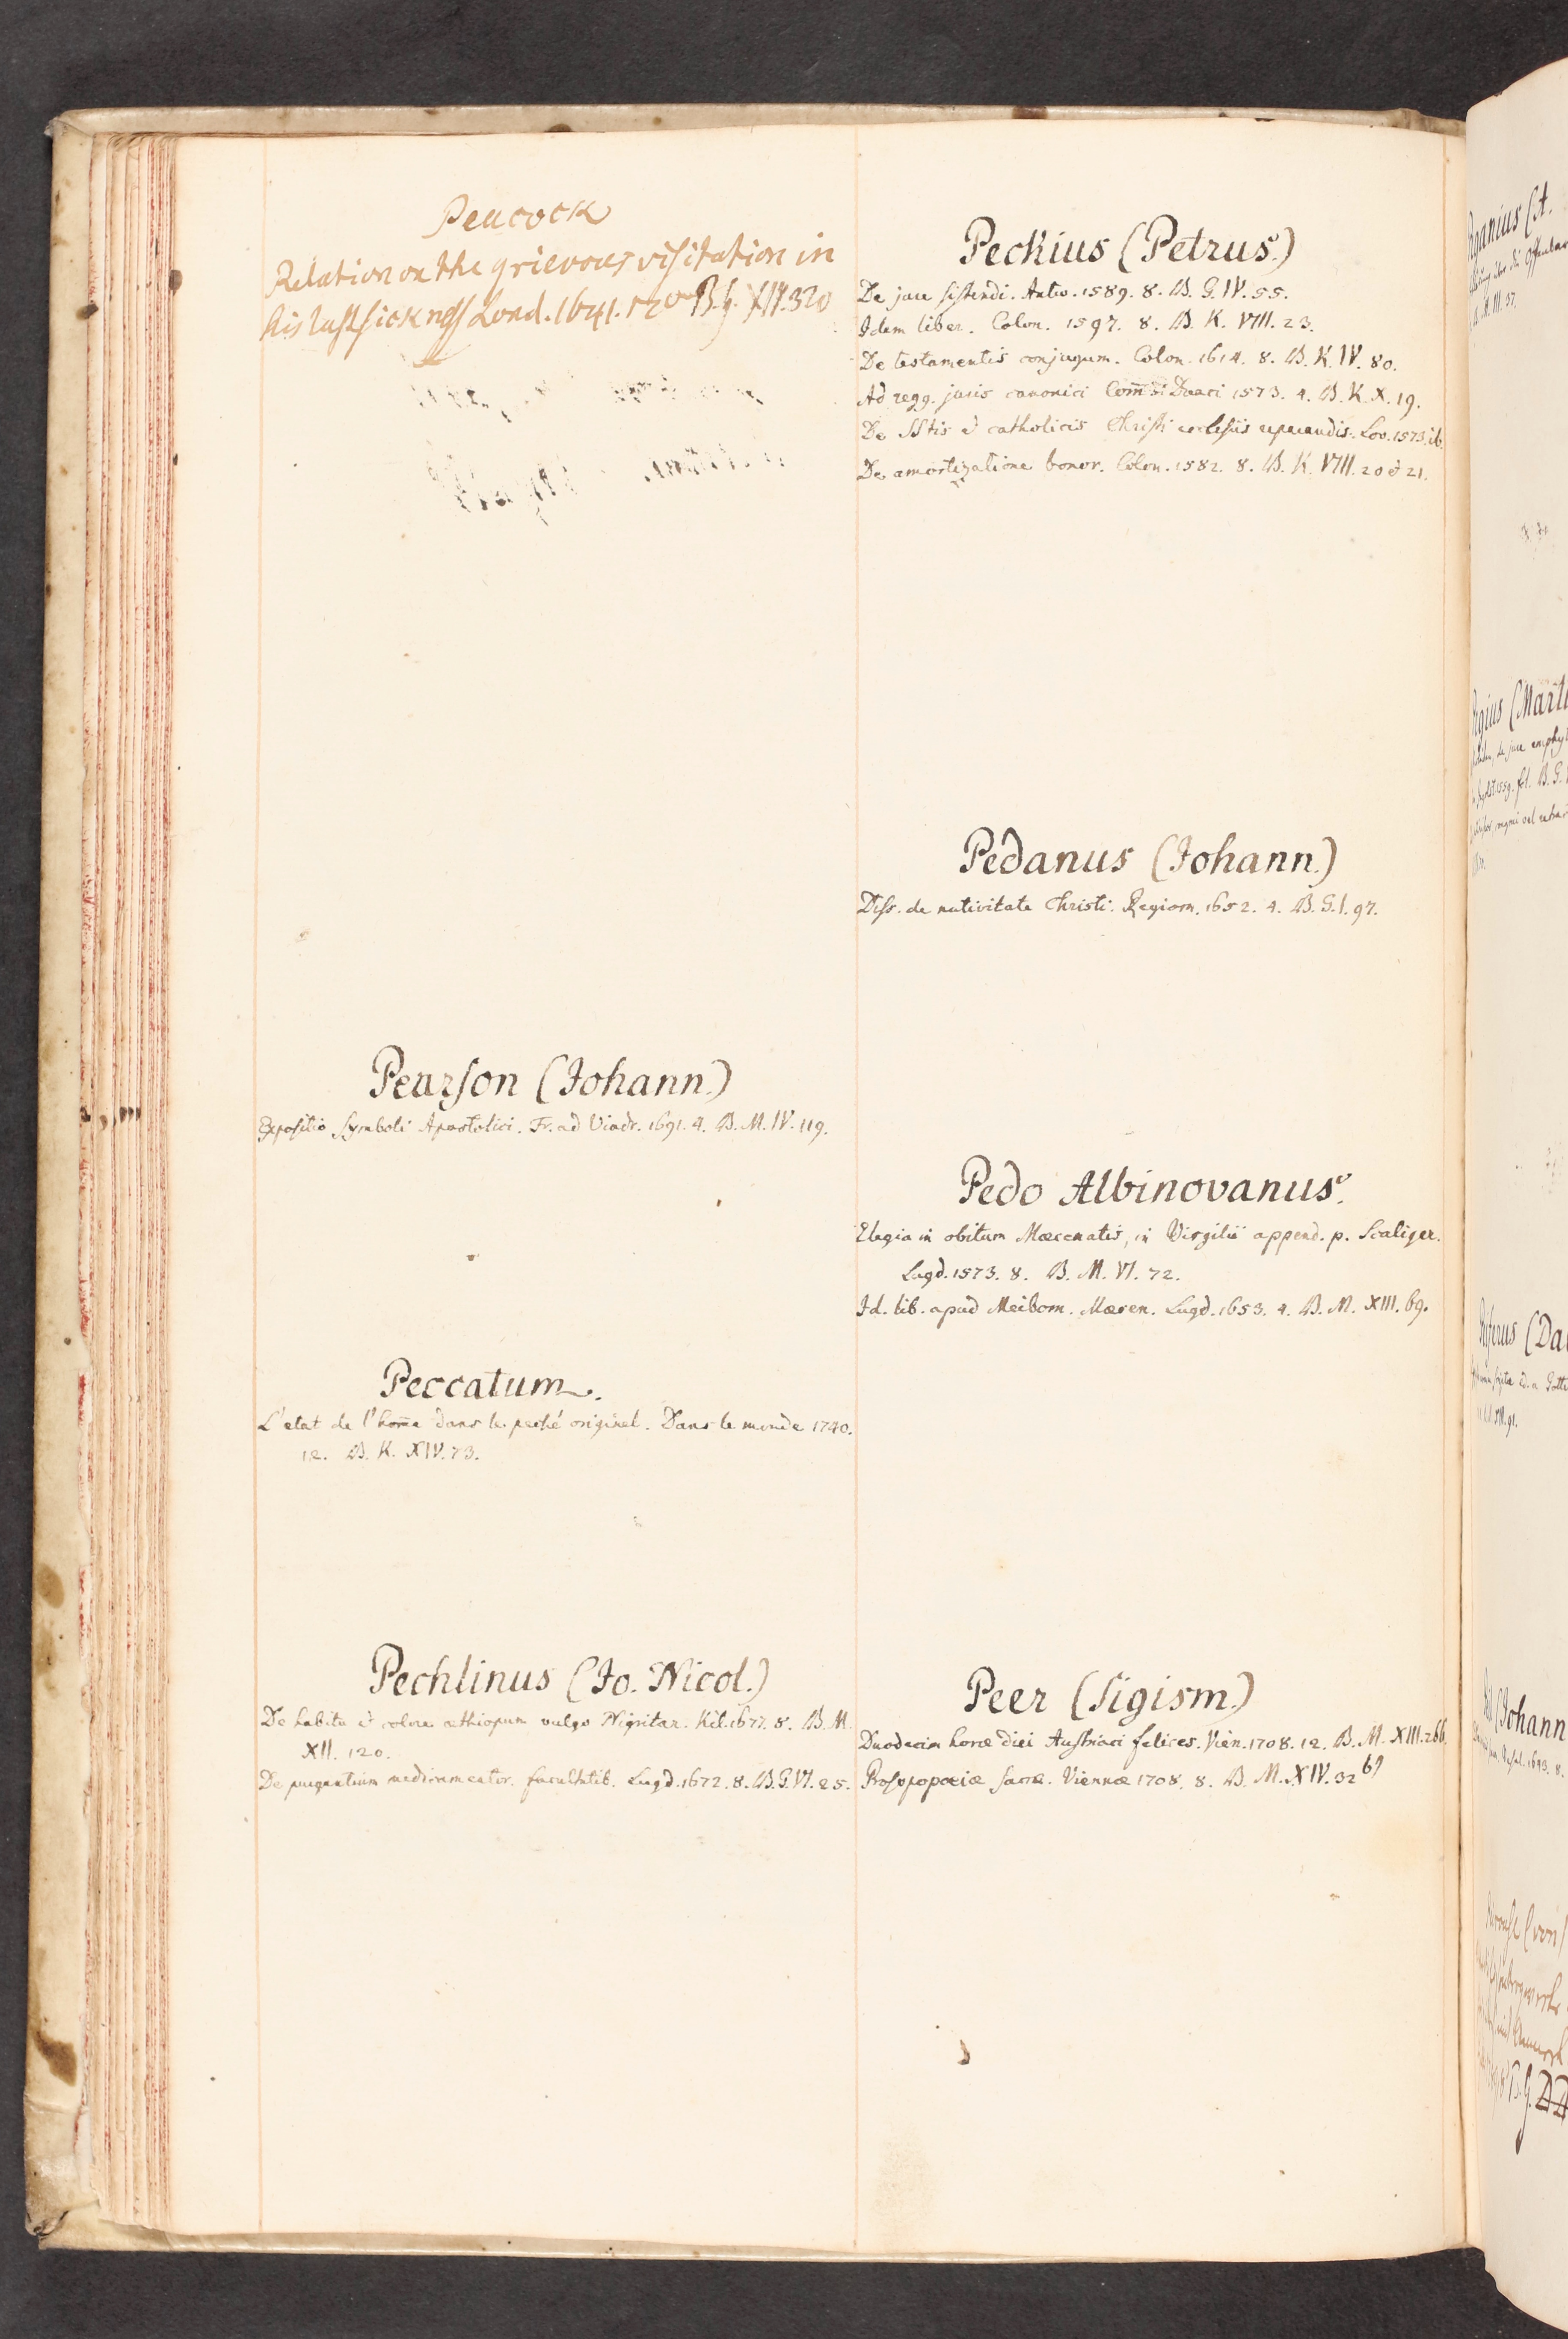 Peacock
Relation on the grievous visitation in
his last sickness Lond. 1641. 12º B. G. XIV. 320
Pearson (Johann.)
Expositio Symboli Apostolici. Fr. ad Viadr. 1691. 4. B. M. IV. 119.
Peccatum.
L'etat de l'home dans le peché originel. Dans le monde 1740.
12. B. K. XIV. 73.
Pechlinus (Jo. Nicol.)
De habitu & colore æthiopum vulgo Nigritar. Kil. 1677. 8. B. M.
XII. 120.
De purgantium medicamentor. facultatib. Lugd. 1672. 8. B. G. VI. 25.
Peckius (Petrus.)
De jure sistendi. Antw. 1589. 8. B. G. IV. 55.
Idem liber. Colon. 1597. 8. B. K. VIII. 23.
De testamentis conjugum. Colon. 1614. 8. B. K. IV. 80.
Ad regg. juris canonici Duaci 1573. 4. B. K. X. 19.
De SStis & catholicis Christi ecclesiis reparandis. Lov. 1573. ib.
De amortizatione bonor. Colon. 1582. 8. B. K. VIII. 20 & 21.
Pedanus (Johann.)
Diss. de nativitate Christi. Regiom. 1652. 4. B. G. I. 97.
Pedo Albinovanus.
Elegia in obitum Mæcenatis, in Virgilii append. p. Scaliger.
Lugd. 1573. 8. B. M. VI. 72.
Id. lib. apud Meibom. Mæcen. Lugd. 1653. 4. B. M. XIII. 69.
Peer (Sigism.)
Duodecim horæ diei Austriaci felices. Vien. 1708. 12. B. M. XIII. 266.
Prosopopoeiæ sacræ. Viennæ 1708. 8. B. M. XIV. 32 b)